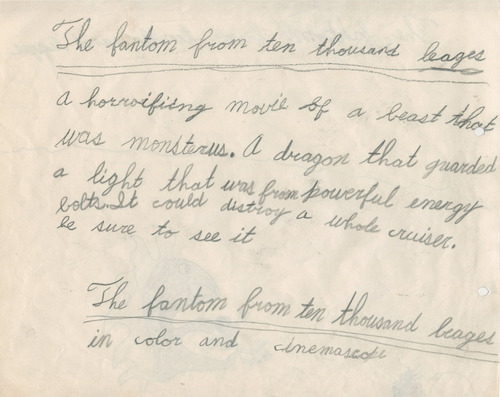 The fantom from ten thousand leages
a horroifisng movie of a beast that
was monsterus. A dragon that guarded
a light that was from powerful energy
bolts. It could distroy a whole cruiser.
be sure to see it
The fantom from ten thousand leages
in color and cinemascope